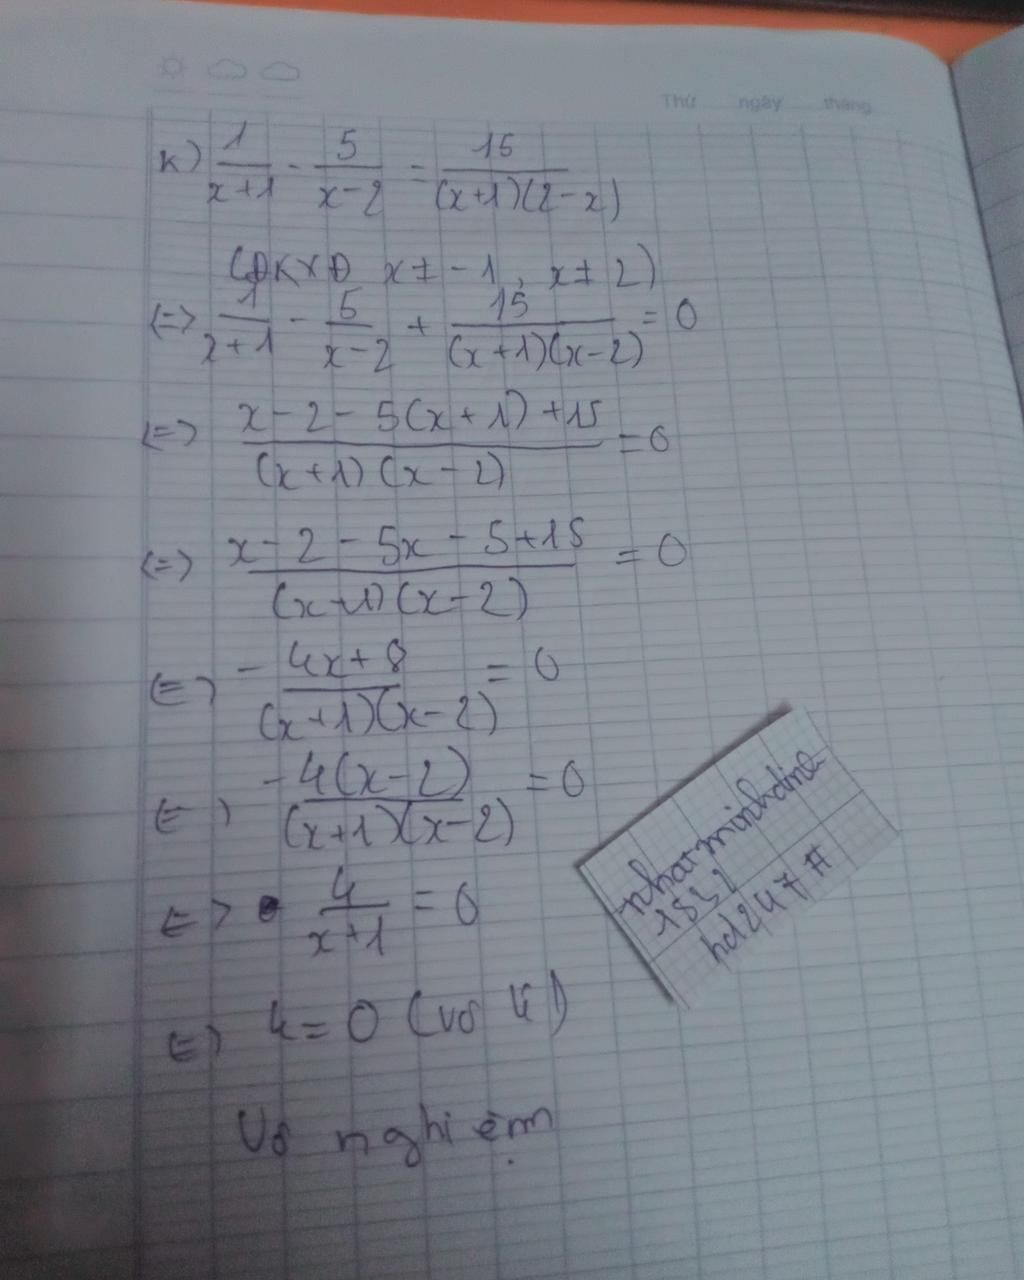 Thứ ngày tháng
k) 1/(x+1) - 5/(x-2) = 15/((x+1)(2-x))
(ĐKXĐ x ≠ -1, x ≠ 2)
<=> 1/(x+1) - 5/(x-2) + 15/((x+1)(x-2)) = 0
<=> (x-2-5(x+1)+15)/((x+1)(x-2)) = 0
<=> (x-2-5x-5+15)/((x+1)(x-2)) = 0
<=> -(4x+8)/((x+1)(x-2)) = 0
<=> -4(x-2)/((x+1)(x-2)) = 0
<=> 4/(x+1) = 0
<=> 4 = 0 (vô lí)
Vô nghiệm
nhatminhdine
hd247 #